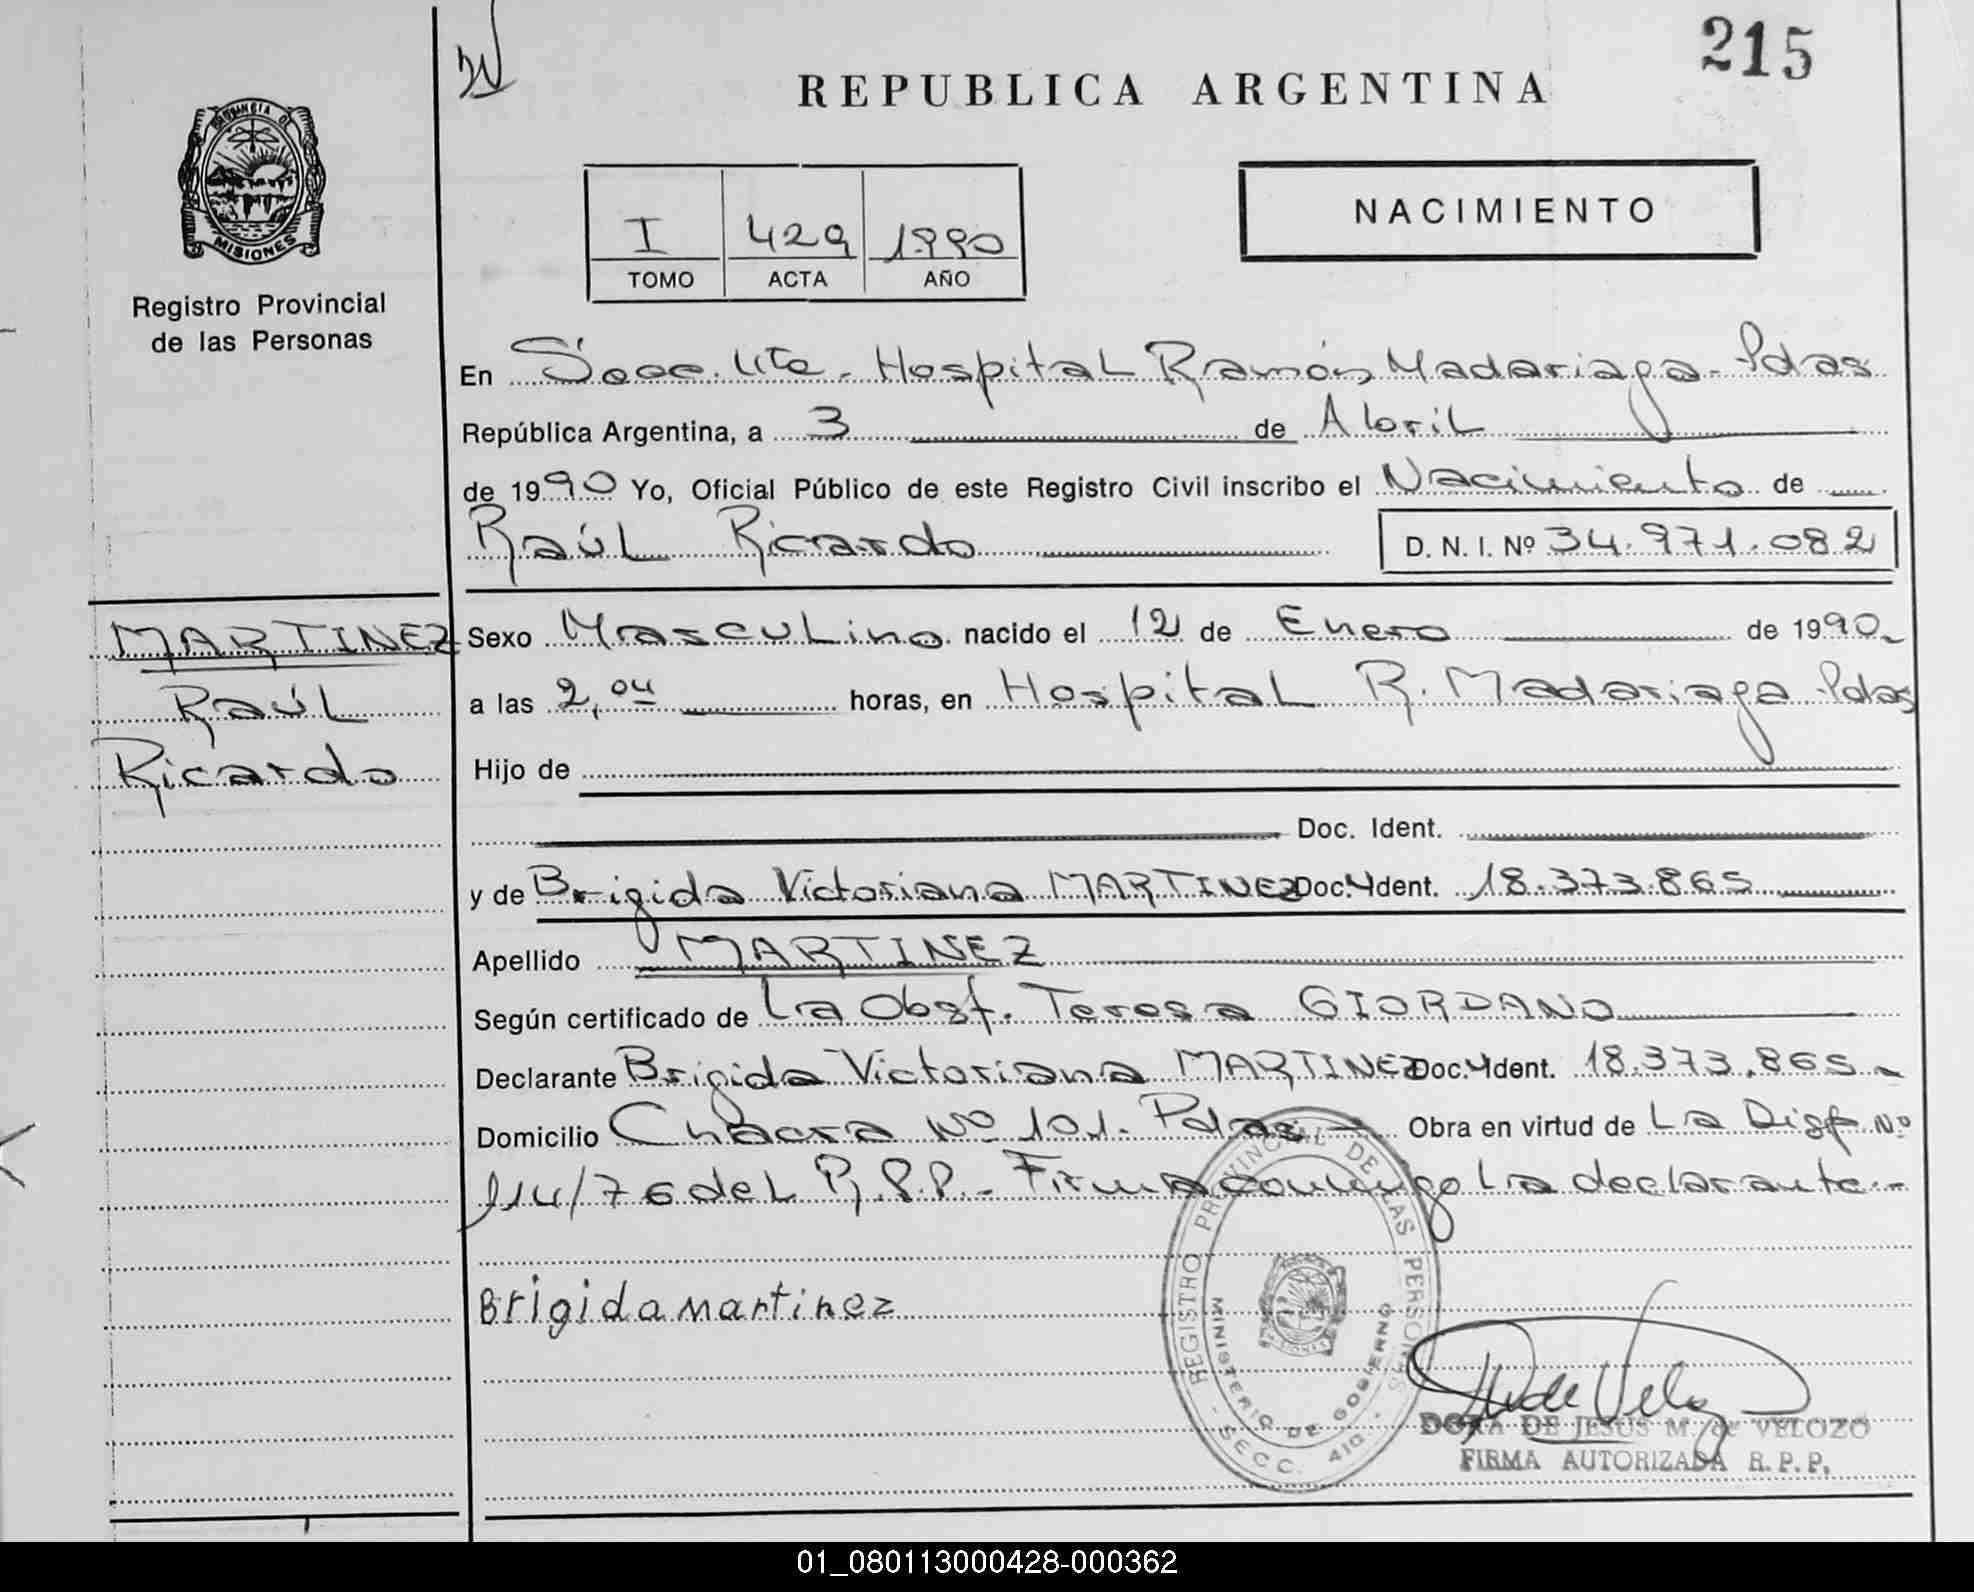 215
REPUBLICA ARGENTINA
PROVINCIA DE
MISIONES
Registro Provincial
de las Personas
I 429 1990
TOMO ACTA AÑO
NACIMIENTO
En Secc. Hospital Ramón Madariaga - Pdas
República Argentina, a 3 de Abril
de 1990 Yo, Oficial Público de este Registro Civil inscribo el Nacimiento de
Raúl Ricardo D. N. I. Nº 34.971.082
MARTINEZ
Raúl
Ricardo
Sexo Masculino nacido el 12 de Enero de 1990
a las 2,04 horas, en Hospital R. Madariaga - Pdas
Hijo de
Doc. Ident.
y de Brigida Victoriana MARTINEZ Doc. Ident. 18.373.865
Apellido MARTINEZ
Según certificado de La Obst. Teresa GIORDANO
Declarante Brigida Victoriana MARTINEZ Doc. Ident. 18.373.865 -
Domicilio Chacra Nº 101 - Pdas - Obra en virtud de La Disp. Nº
114/76 del R.P.P. - Firma conmigo La declarante. -
Brigida Martinez
REGISTRO PROVINCIAL DE LAS PERSONAS
MINISTERIO DE GOBIERNO
- SECC. 4ta. -
DORA DE JESUS M. de VELOZO
FIRMA AUTORIZADA R. P. P.
01_080113000428-000362